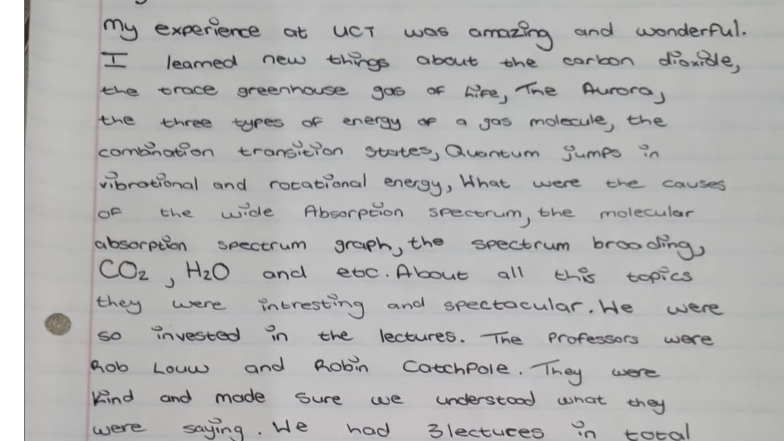 My experience at UCT was amazing and wonderful.
I learned new things about the carbon dioxide,
the trace greenhouse gas of Life, The Aurora,
the three types of energy of a gas molecule, the
combination transition states, Quantum jumps in
vibrational and rotational energy, What were the causes
of the wide Absorption spectrum, the molecular
absorption spectrum graph, the spectrum broading,
CO2, H2O and etc. About all this topics
they were intresting and spectacular. We were
so invested in the lectures. The Professors were
Rob Louw and Robin CatchPole. They were
kind and made sure we understood what they
were saying. We had 3 lectures in total